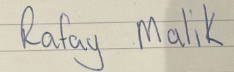 Rafay Malik